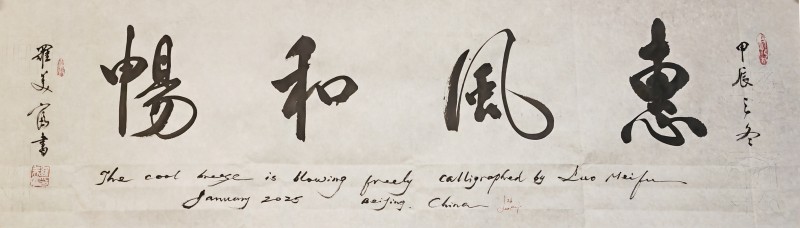 甲辰之冬
惠風和暢
羅美富書
The cool breeze is blowing freely calligraphed by Luo Meifu
January 2025 Beijing. China